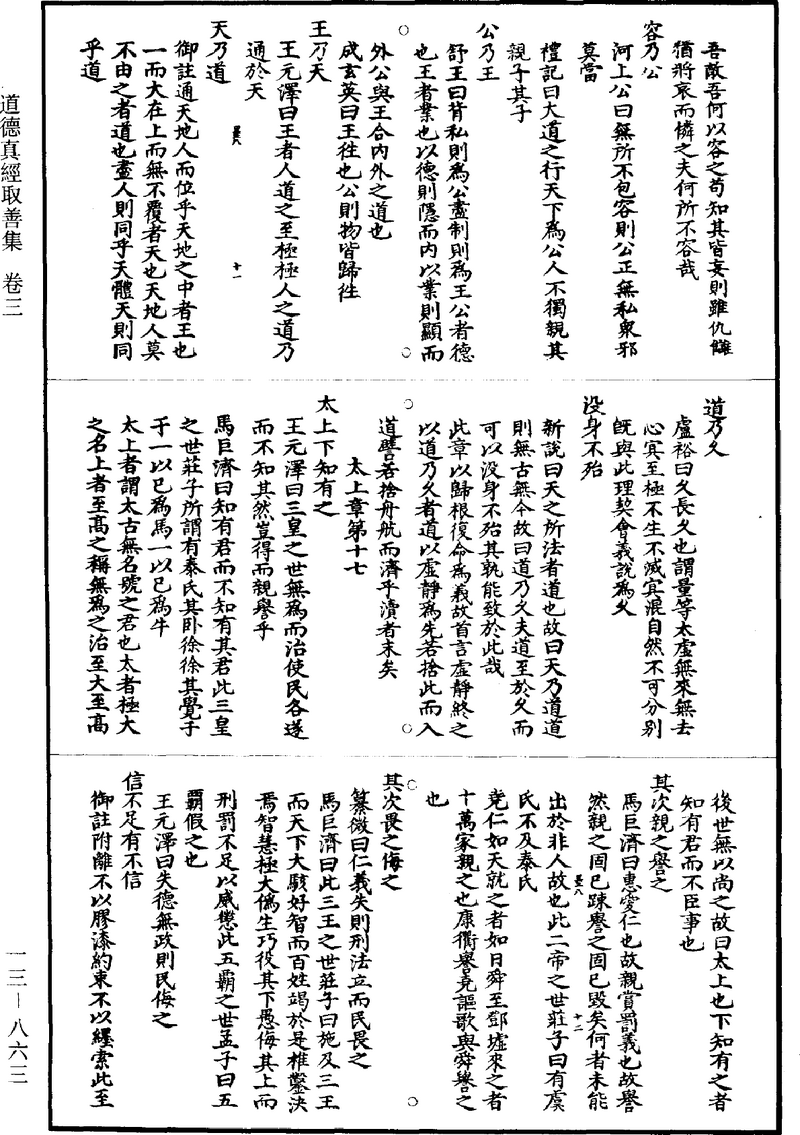 吾敵吾何以容之苟知其皆妄則雖仇讎
猶將哀而憐之夫何所不容哉
容乃公
河上公曰無所不包容則公正無私衆邪
莫當
禮記曰大道之行天下爲公人不獨親其
親子其子
公乃王
舒王曰背私則爲公盡制則爲王公者德
也王者業也以德則隱而內以業則顯而
外公與王合內外之道也
成玄英曰王徃也公則物皆歸徃
王乃天
王元澤曰王者人道之至極極人之道乃
通於天
天乃道
御註通天地人而位乎天地之中者王也
一而大在上而無不覆者天也天地人莫
不由之者道也盡人則同乎天體天則同
乎道
道乃久
盧裕曰久長久也謂量等太虛無來無去
心冥至極不生不滅冥混自然不可分别
旣與此理契會義說爲久
没身不殆
新說曰天之所法者道也故曰天乃道道
則無古無今故曰道乃久夫道至於久而
可以没身不殆其孰能致於此哉
此章以歸根復命爲義故首言虛靜終之
以道乃久者道以虛靜爲先若捨此而入
道譬若捨舟航而濟乎瀆者未矣
太上章第十七
太上下知有之
王元澤曰三皇之世無爲而治使民各遂
而不知其然豈得而親譽乎
馬巨濟曰知有君而不知有其君此三皇
之世莊子所謂有泰氏其卧徐徐其覺于
于一以已爲馬一以已爲牛
太上者謂太古無名號之君也太者極大
之名上者至高之稱無爲之治至大至高
後世無以尚之故曰太上也下知有之者
知有君而不臣事也
其次親之譽之
馬巨濟曰惠愛仁也故親賞罰義也故譽
然親之固已踈譽之固已毀矣何者未能
出於非人故也此二帝之世莊子曰有虞
氏不及泰氏
堯仁如天就之者如日舜至鄧墟來之者
十萬家親之也康衢舉堯謳歌與舜譽之
也
其次畏之侮之
纂微曰仁義失則刑法立而民畏之
馬巨濟曰此三王之世莊子曰施及三王
而天下大駭好智而百姓竭於是椎鑿決
焉智慧極大僞生巧役其下愚侮其上而
刑罰不足以威懲此五霸之世孟子曰五
覇假之也
王元澤曰失德無政則民侮之
信不足有不信
御註附離不以膠漆約束不以纆索此至
道德真經取善集　卷三
一三－八六三